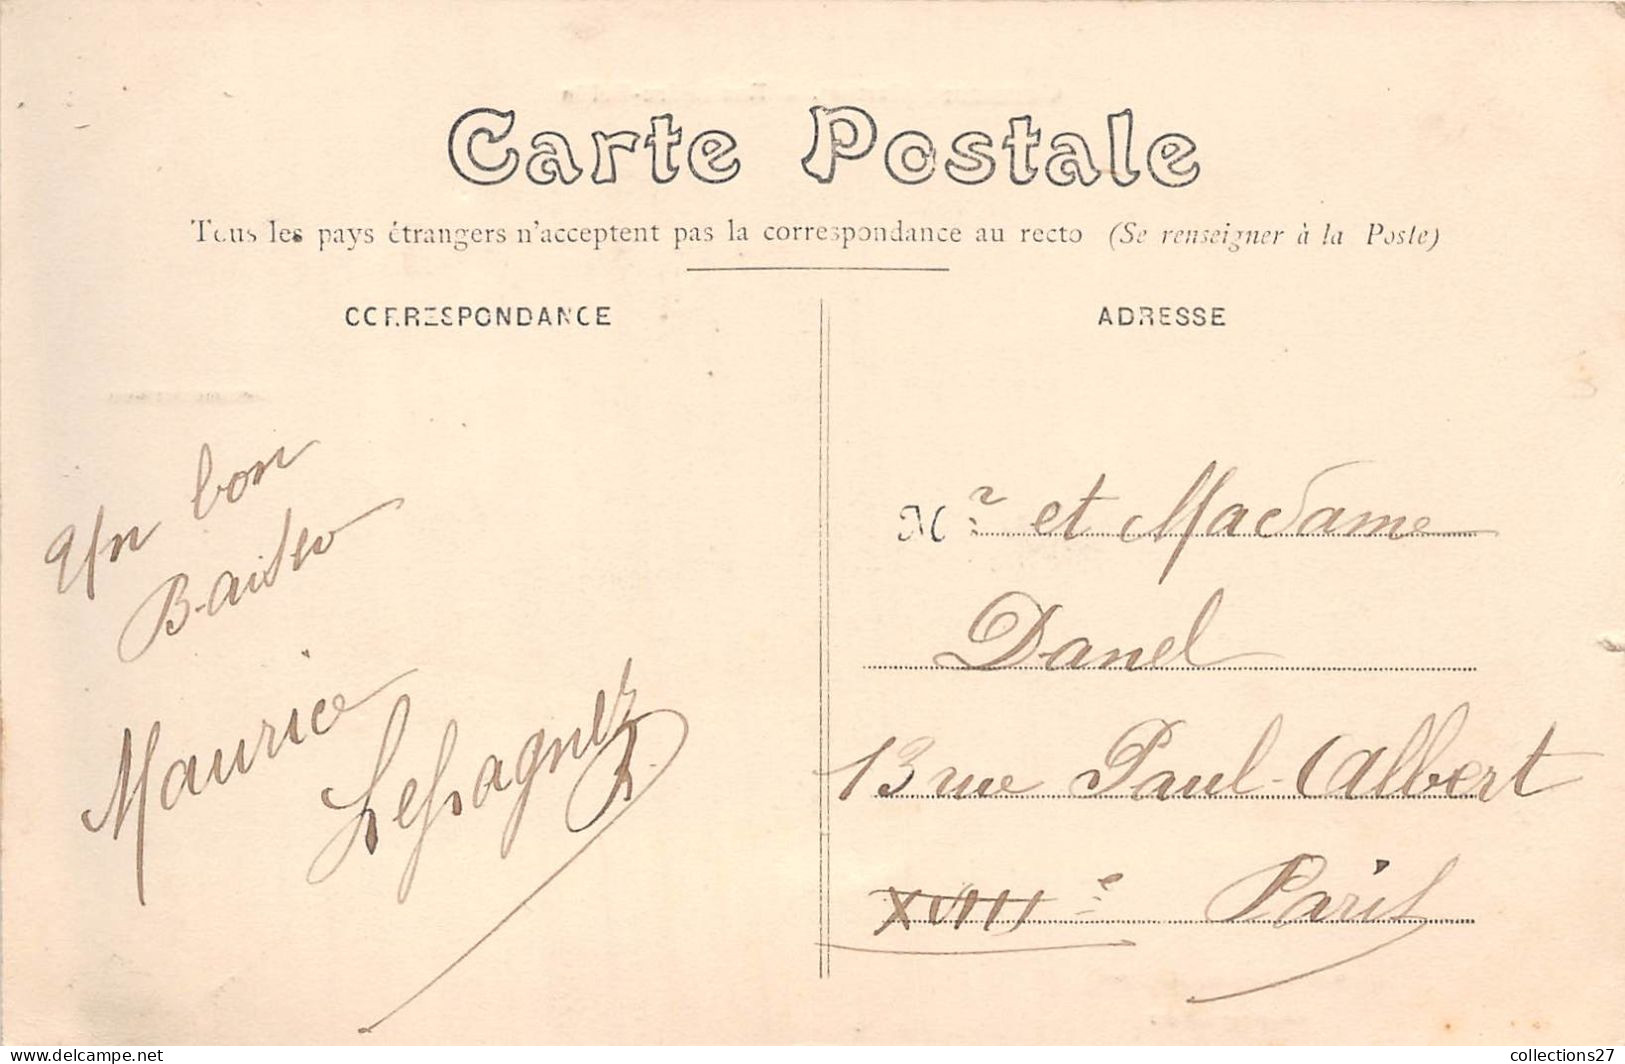 Carte Postale
Tous les pays étrangers n'acceptent pas la correspondance au recto (Se renseigner à la Poste)
CORRESPONDANCE
Un bon
Baiser
Maurice
Lespagnez
ADRESSE
Mr et Madame
Danel
13 rue Paul-Albert
XVIIIe Paris
collections27